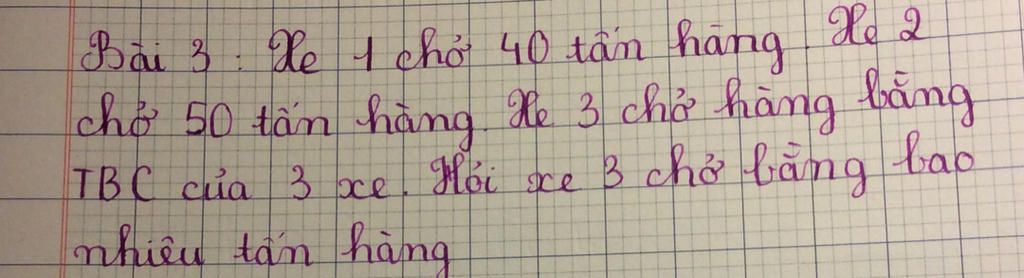 Bài 3 : Xe 1 chở 40 tấn hàng. Xe 2
chở 50 tấn hàng. Xe 3 chở hàng bằng
TBC của 3 xe. Hỏi xe 3 chở bằng bao
nhiêu tấn hàng